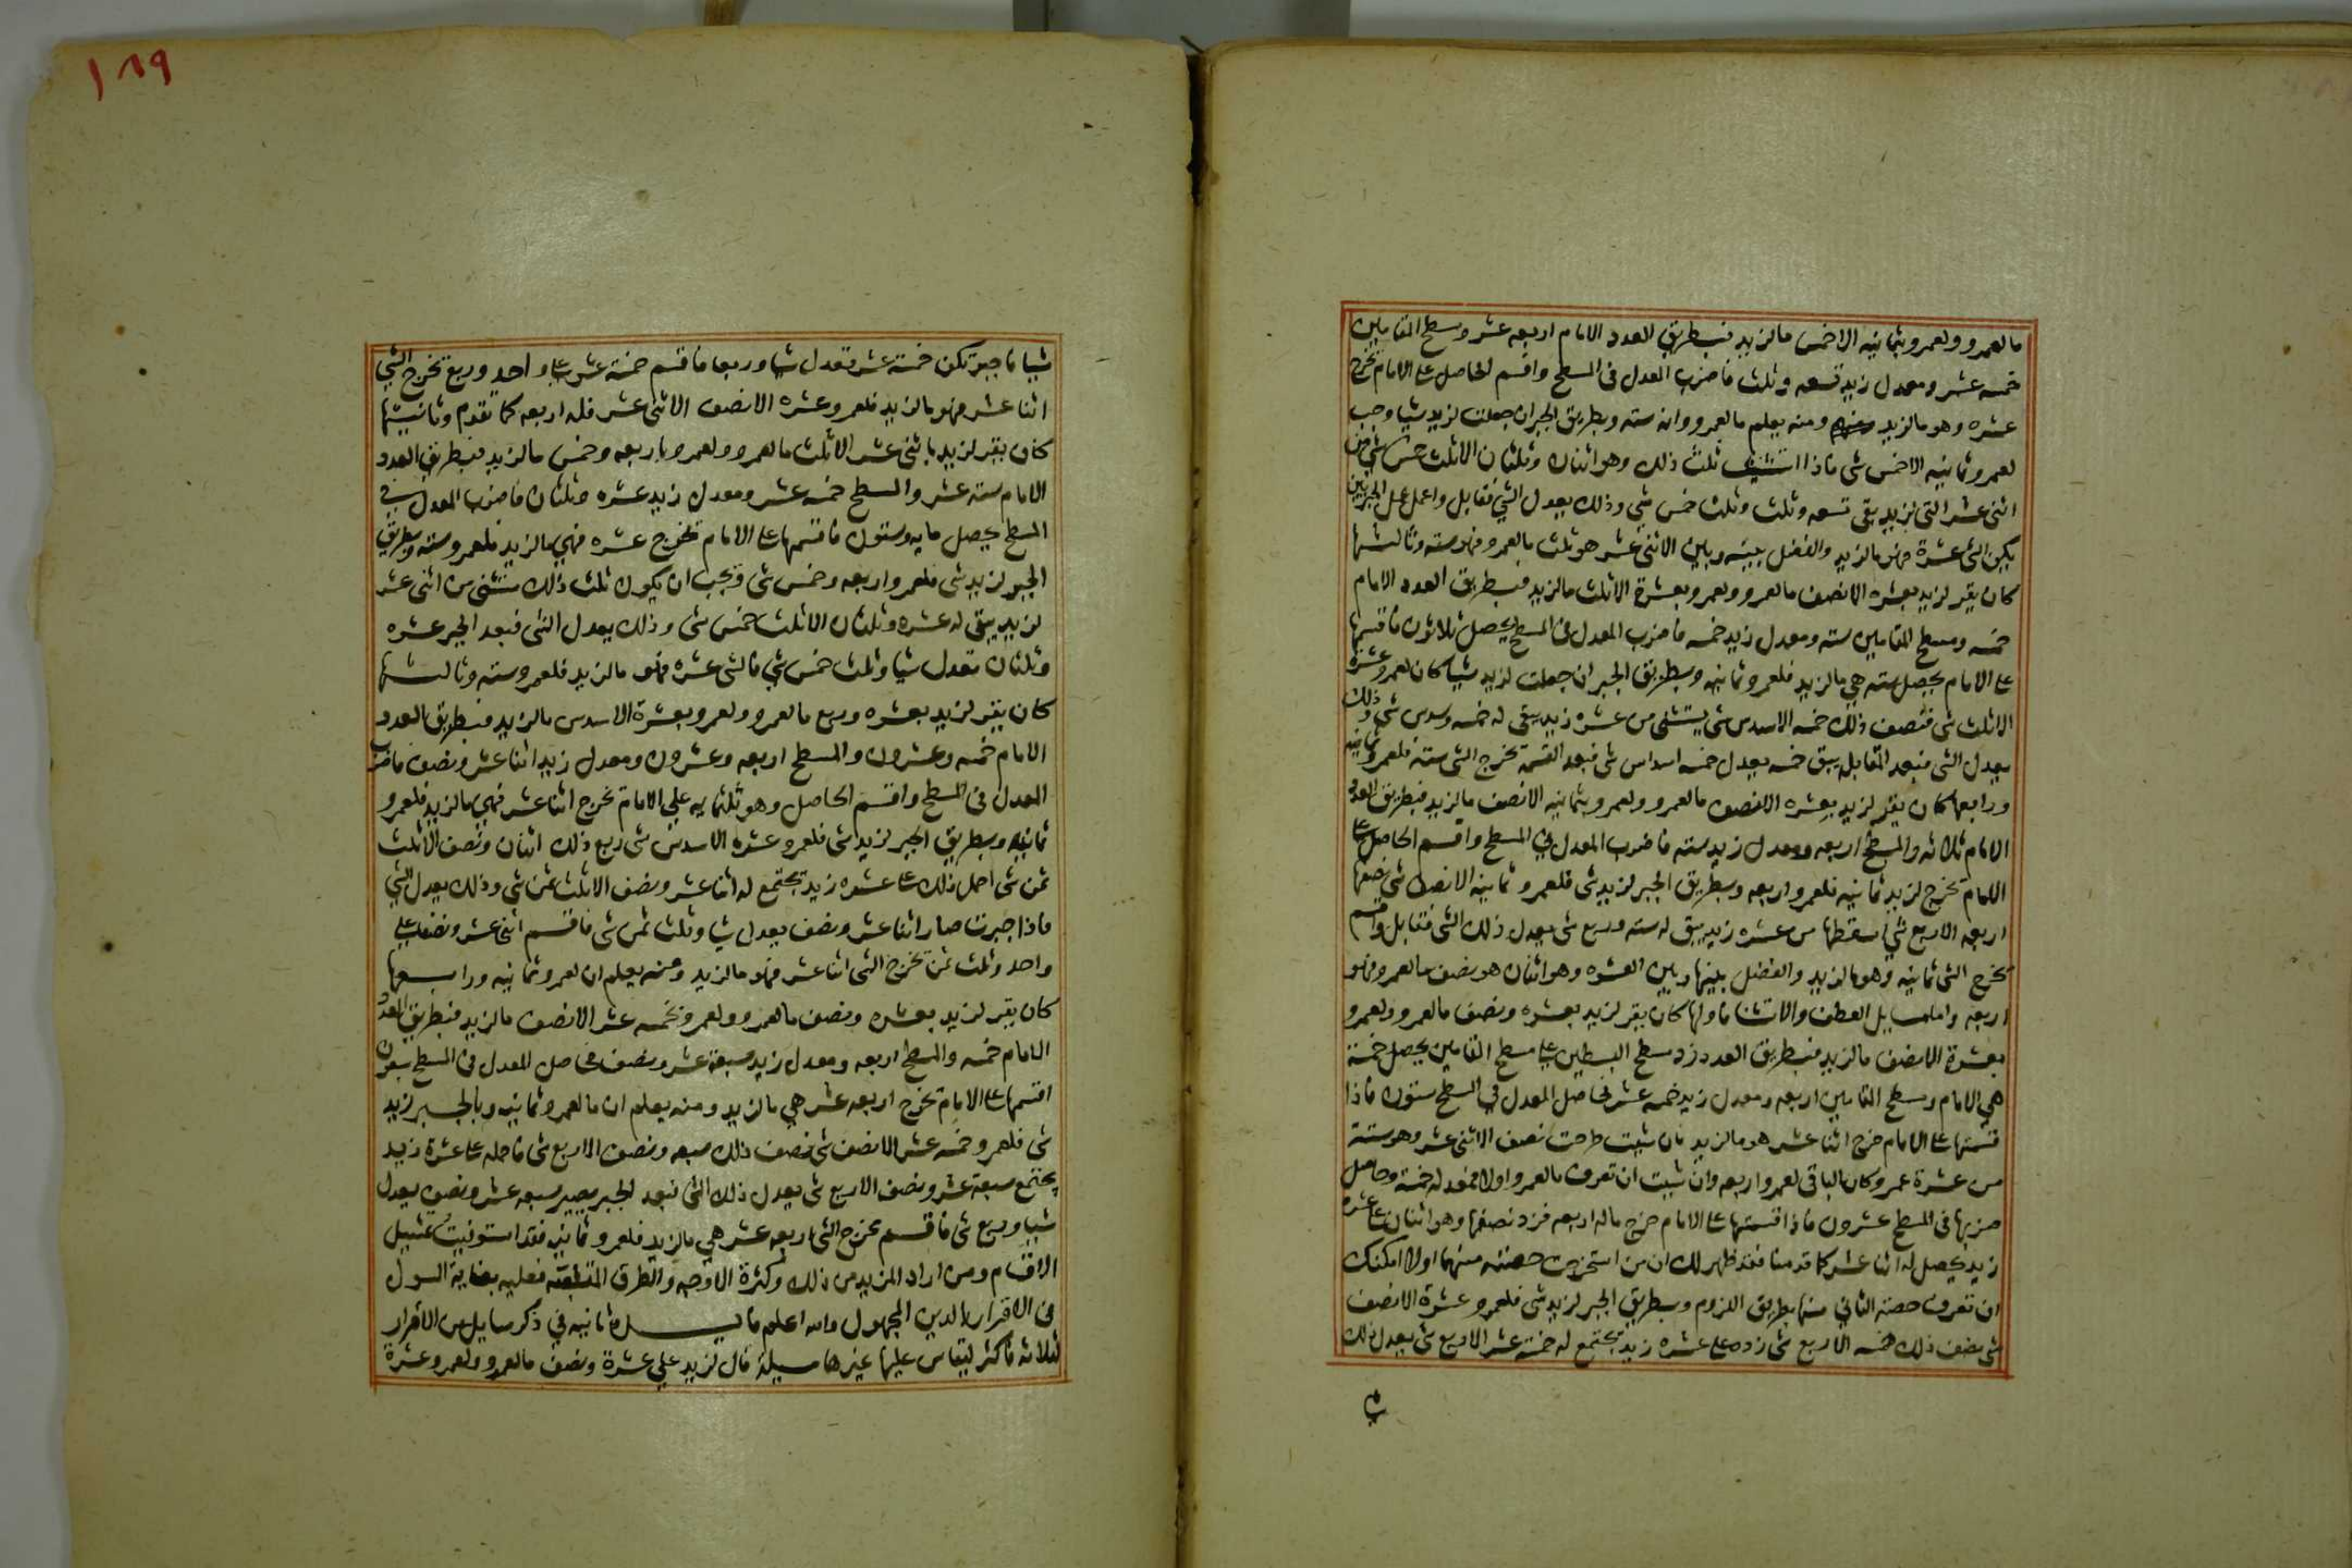 مالعمرو ولعمرو بثمانيه الاخمس مالزيد فبطريق العدد الامام اربعه عشر وسطح المقامين
خمسه عشر ومعدل زيد تسعه وثلث فاضرب المعدل في المسطح واقسم الحاصل على الامام تخرج
عشره وهو مالزيد ومنه يعلم مالعمرو وانه سته وبطريق الجبر ان جعلت لزيد شيا وجب
لعمرو ثمانيه الاخمس شي فاذا استثنيت ثلث ذلك وهو اثنان وثلثان الاثلث خمس شي من
اثنى عشر التى لزيد يبقى تسعه وثلث وثلث خمس شي وذلك يعدل الشي فقابل واعمل عمل الجبريين
يكن الشي عشرة فهو مالزيد والفضل بينه وبين الاثنى عشر هو ثلث مالعمرو فهو سته وثالثها
كان يقر لزيد بعشره الانصف مالعمرو ولعمرو بعشرة الاثلث مالزيد فبطريق العدد الامام
خمسه ومسطح المقامين سته ومعدل زيد خمسه فاضرب المعدل في المسطح يحصل ثلاثون فاقسمها
على الامام يحصل سته هي مالزيد فلعمرو ثمانيه وبطريق الجبر ان جعلت لزيد شيا كان لعمرو عشرة
الاثلث شي فنصف ذلك خمسه الاسدس شي يستثنى من عشره زيد يبقى له خمسه وسدس شي وذلك
يعدل الشي فبعد المقابله يبق خمسه يعدل خمسه اسداس شي فبعد القسمة تخرج الشي سته فلعمرو ثمانيه
ورابعها كان يقر لزيد بعشره الانصف مالعمرو ولعمرو بثمانيه الانصف مالزيد فبطريق العدد
الامام ثلاثه والمسطح اربعه ومعدل زيد سته فاضرب المعدل في المسطح واقسم الحاصل على
الامام تخرج لزيد ثمانيه فلعمرو اربعه وبطريق الجبر لزيد شي فلعمرو ثمانيه الانصف شي نصفها
اربعه الاربع شي اسقطها من عشره زيد يبق له سته وربع شي يعدل ذلك الشي فقابل واقسم
تخرج الشي ثمانيه وهو مالزيد والفضل بينها وبين العشره وهو اثنان هو نصف مالعمرو فهو
اربعه واما مسايل العطف والاستثنا فاولها كان يقر لزيد بعشره ونصف مالعمرو ولعمرو
بعشرة الانصف مالزيد فبطريق العدد زد مسطح البسطين على مسطح المقامين يحصل خمسة
هي الامام ومسطح المقامين اربعه ومعدل زيد خمسه عشر فحاصل المعدل في المسطح ستون فاذا
قسمتها على الامام خرج اثنا عشر هو مالزيد فان شيت طرحت نصف الاثنى عشر وهو ستة
من عشرة عمرو كان الباقى لعمرو اربعه وان شيت ان تعرف مالعمرو اولا فمعدله خمسة وحاصل
ضربها في المسطح عشرون فاذا قسمتها على الامام خرج ماله اربعه فزد نصفها وهو اثنان على عشره
زيد يحصل له اثنا عشر كما قدمنا فقد ظهر لك ان من استخرجت حصته منهما اولا امكنك
ان تعرف حصة الثاني منهما بطريق اللزوم وبطريق الجبر لزيد شي فلعمرو عشرة الانصف
شي نصف ذلك خمسه الاربع شي زده على عشره زيد تجتمع له خمسة عشر الاربع شي يعدل ذلك
١٨٩
شيا فاجبر تكن خمسة عشر تعدل شيا وربعا فاقسم خمسة عشر على واحد وربع تخرج الشي
اثنا عشر فهو مالزيد فلعمرو عشره الانصف الاثنى عشر فله اربعه كما تقدم وثانيتها
كان يقر لزيد باثنى عشر الاثلث مالعمرو ولعمرو باربعه وخمس مالزيد فبطريق العدد
الامام سته عشر والمسطح خمسه عشر ومعدل زيد عشره وثلثان فاضرب المعدل في
المسطح يحصل مايه وستون فاقسمها على الامام تخرج عشره فهي مالزيد فلعمرو سته وبطريق
الجبر لزيد شي فلعمرو اربعه وخمس شي فيجب ان يكون ثلث ذلك مستثنى من اثنى عشر
لزيد يبقى له عشره وثلثان الاثلث خمس شي وذلك يعدل الشي فبعد الجبر عشره
وثلثان تعدل شيا وثلث خمس شي فالشي عشره فهو مالزيد فلعمرو سته وثالثها
كان يقر لزيد بعشره وربع مالعمرو ولعمرو بعشرة الاسدس مالزيد فبطريق العدد
الامام خمسه وعشرون والمسطح اربعه وعشرون ومعدل زيد اثنا عشر ونصف فاضرب
المعدل في المسطح واقسم الحاصل وهو ثلثمايه على الامام تخرج اثنا عشر فهي مالزيد فلعمرو
ثمانيه وبطريق الجبر لزيد شي فلعمرو عشره الاسدس شي ربع ذلك اثنان ونصف الاثلث
ثمن شي احمل ذلك على عشره زيد تجتمع له اثنا عشر ونصف الاثلث ثمن شي وذلك يعدل الشي
فاذا جبرت صار اثنا عشر ونصف يعدل شيا وثلث ثمن شي فاقسم اثنى عشر ونصف على
واحد وثلث ثمن تخرج الشي اثنا عشر فهو مالزيد ومنه يعلم ان لعمرو ثمانيه ورابعها
كان يقر لزيد بعشره ونصف مالعمرو ولعمرو بخمسه عشر الانصف مالزيد فبطريق العدد
الامام خمسه والمسطح اربعه ومعدل زيد سبعة عشر ونصف فحاصل المعدل في المسطح سبعون
اقسمها على الامام تخرج اربعه عشر هي مالزيد ومنه يعلم ان مالعمرو ثمانيه وبالجبر لزيد
شي فلعمرو خمسه عشر الانصف شي نصف ذلك سبعه ونصف الاربع شي فاحمله على عشرة زيد
يجتمع سبعة عشر ونصف الاربع شي يعدل ذلك الشي فبعد الجبر يصير سبعه عشر ونصف يعدل
شيا وربع شي فاقسم تخرج الشي اربعه عشر هي مالزيد فلعمرو ثمانيه فقد استوفيت تمثيل
الاقسام ومن اراد المزيد من ذلك وكثرة الاوجه والطرق فعليه بغاية السول
في الاقرار بالدين المجهول والله اعلم ثانيه في ذكر مسايل من الاقرار
لثلاثه فاكثر ليقاس عليها غيرها مسيلة قال لزيد علي عشرة ونصف مالعمرو ولعمرو عشرة